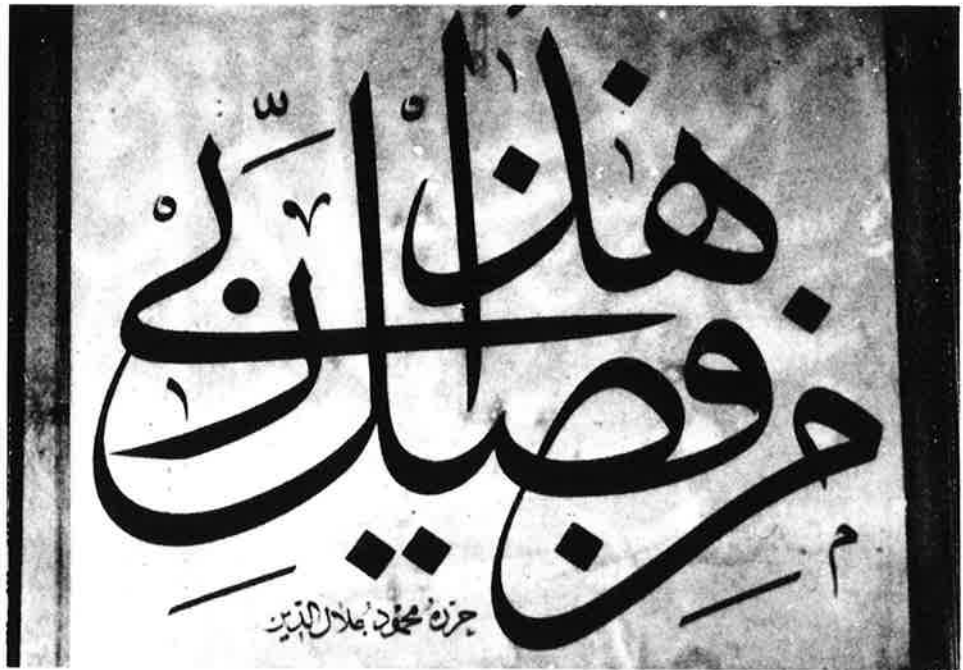 هذا
من فضل ربي
حرره محمود جلال الدين